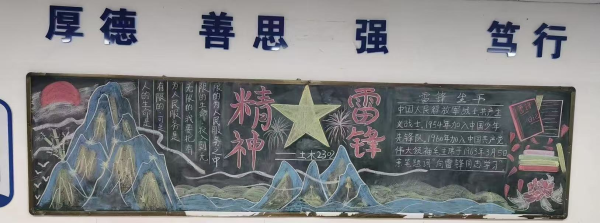 厚德 善思 强 笃行
人的生命是
有限的可是
为人民服务是
无限的我要把有
限的生命投入到无
限的为人民服务中
雷锋
精神
——土木2302
雷锋生平
中国人民解放军战士共产主
义战士,1954年加入中国少年
先锋队,1960年加入中国共产党
伟大领袖毛主席于1963年3月5日
亲笔题词"向雷锋同志学习